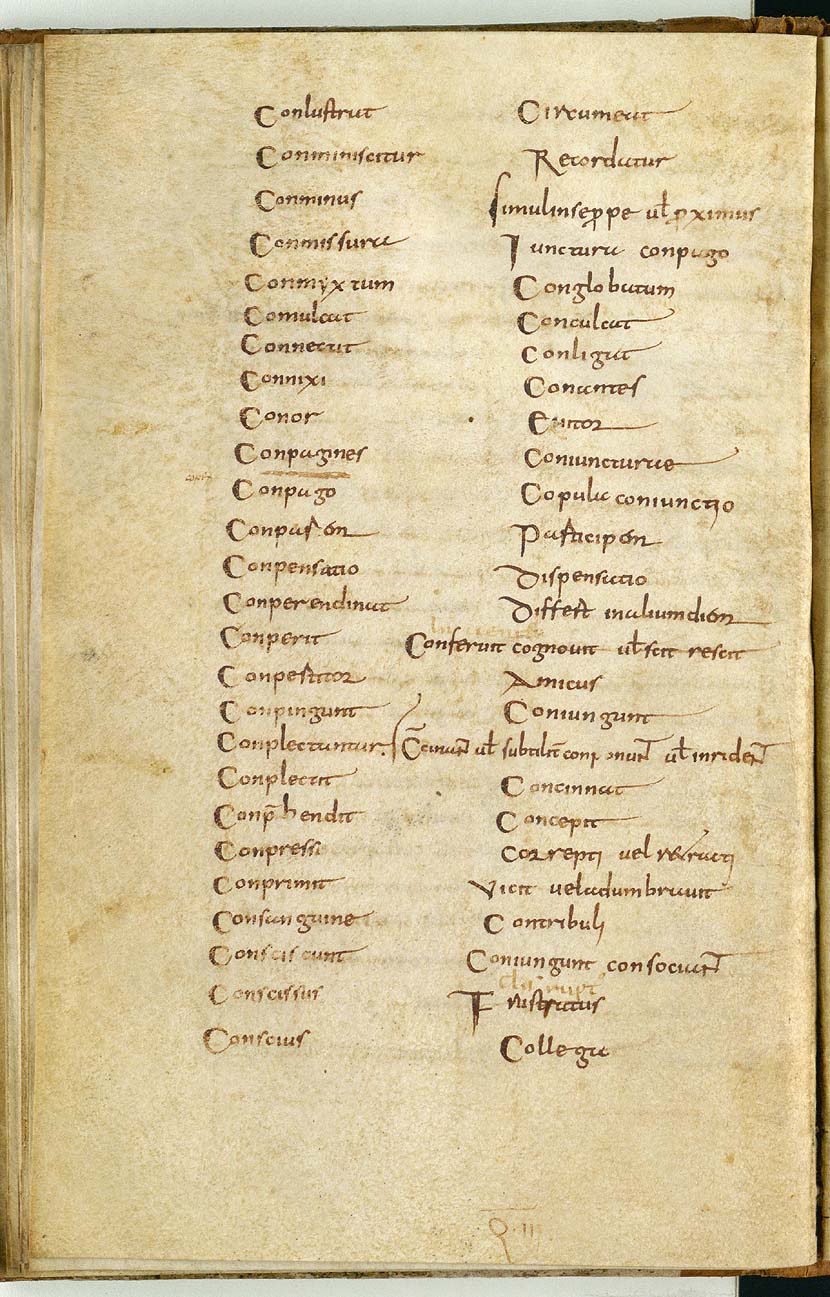 Conlustrat Circumeat
Conminiscitur Recordatur
Conminus Simulinseppe ul proximus
Conmissura Iunctura conpago
Conmyxtum Conglobatum
Comulcat Conculcat
Connectit Conligat
Connixi Conantes
Conor
Conpagines Coniuncturae
Conpago Copula coniunctio
Conpar
Conpensatio Dispensatio
Conperendinat Differt inaliumdiem
Conperit Conferunt cognouit ul scit rescit
Amicus
Conpingunt Coniungunt
Conplectuntur
Conplectit Concinnat
Conp̄hendit Concepit
Conpressi Correpti vel retracti
Conprimit Vicit veladumbrauit
Consanguine Contribuli
Consciscunt Coniungunt consociant
Conscissus Frustratus
Conscius Collega
Q·II